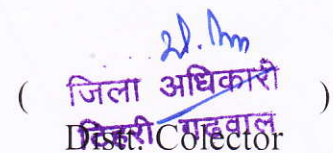 ( जिला अधिकारी )
टिहरी गढ़वाल
Distt. Colector